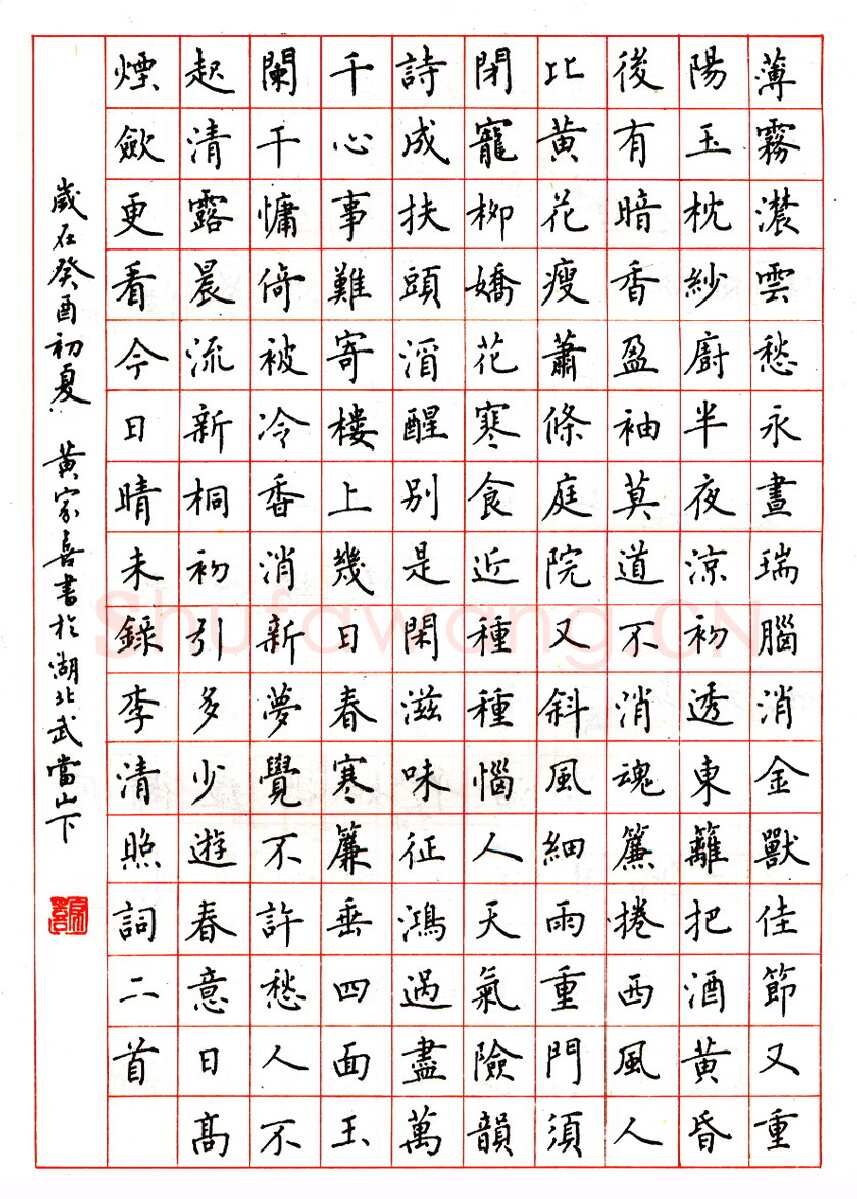 薄霧濃雲愁永晝瑞腦消金獸佳節又重
陽玉枕紗廚半夜涼初透東籬把酒黃昏
後有暗香盈袖莫道不消魂簾捲西風人
比黃花瘦蕭條庭院又斜風細雨重門須
閉寵柳嬌花寒食近種種惱人天氣險韻
詩成扶頭酒醒別是閑滋味征鴻過盡萬
千心事難寄樓上幾日春寒簾垂四面玉
闌干慵倚被冷香消新夢覺不許愁人不
起清露晨流新桐初引多少遊春意日高
煙斂更看今日晴未錄李清照詞二首
歲在癸酉初夏 黃家喜書於湖北武當山下
家喜
Shufawang.CN